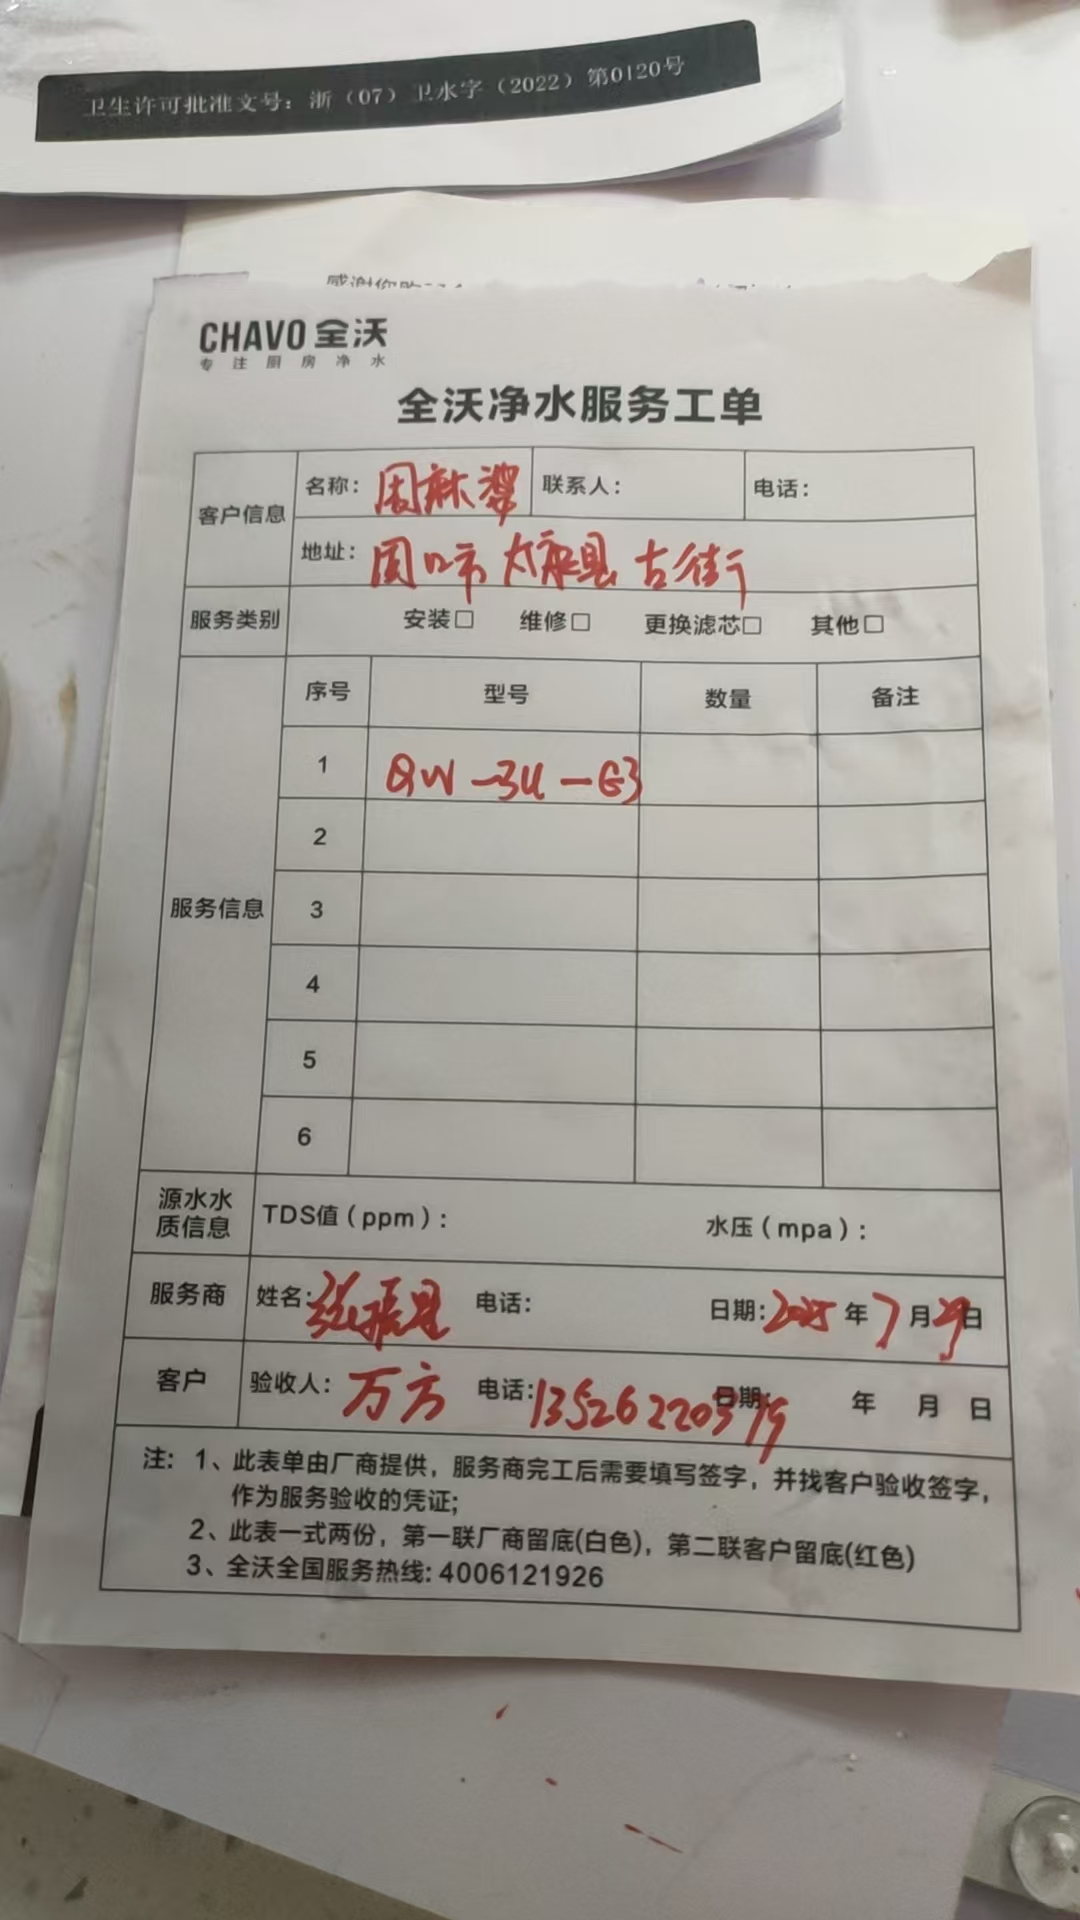 卫生许可批准文号：浙（07）卫水字（2022）第0120号
CHAVO 全沃
专注厨房净水
全沃净水服务工单
客户信息 名称：周麻婆 联系人： 电话：
地址：周口市太康县古街
服务类别 安装□ 维修□ 更换滤芯□ 其他□
服务信息 序号 型号 数量 备注
1 QW-3U-G3
2
3
4
5
6
源水水质信息 TDS值（ppm）： 水压（mpa）：
服务商 姓名： 电话： 日期：2025年7月29日
客户 验收人：万方 电话：13526220379 日期： 年 月 日
注：1、此表单由厂商提供，服务商完工后需要填写签字，并找客户验收签字，
作为服务验收的凭证；
2、此表一式两份，第一联厂商留底(白色)，第二联客户留底(红色)
3、全沃全国服务热线：4006121926